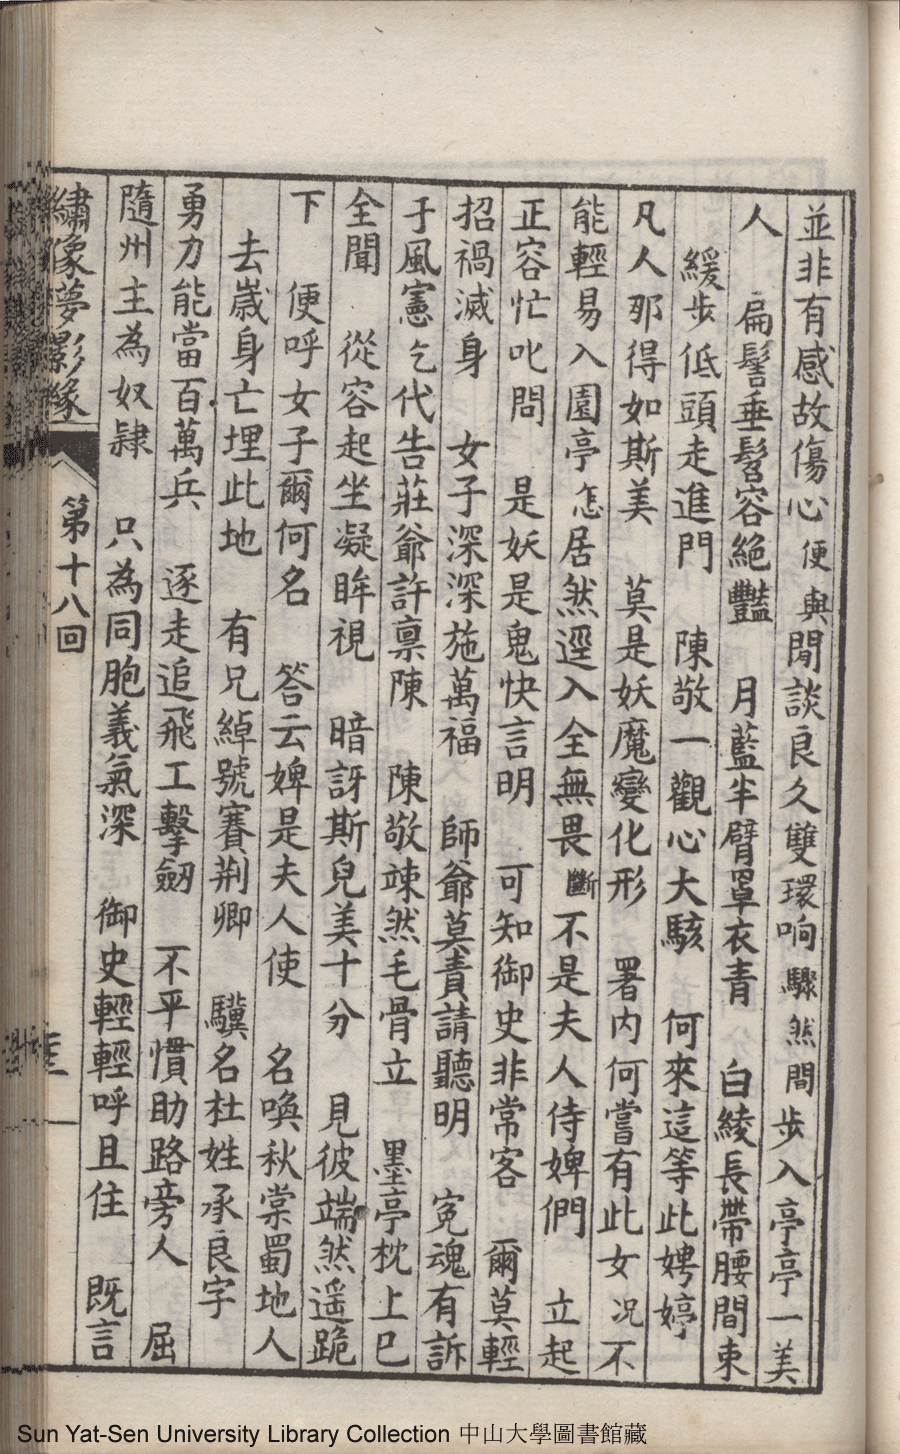 並非有感故傷心 便與閒談良久雙環响 驟然間步入亭亭一美
人 扁髻垂髫容絕豔 月藍半臂罩衣青 白綾長帶腰間束
緩步低頭走進門 陳敬一觀心大駭 何來這等此娉婷
凡人那得如斯美 莫是妖魔變化形 署內何嘗有此女 况不
能輕易入園亭 怎居然逕入全無畏 斷不是夫人侍婢們 立起
正容忙叱問 是妖是鬼快言明 可知御史非常客 爾莫輕
招禍滅身 女子深深施萬福 師爺莫責請聽明 寃魂有訴
于風憲 乞代告莊爺許禀陳 陳敬竦然毛骨立 墨亭枕上已
全聞 從容起坐凝眸視 暗訝斯兒美十分 見彼端然遥跪
下 便呼女子爾何名 答云婢是夫人使 名喚秋棠蜀地人
去歲身亡埋此地 有兄綽號賽荆卿 驥名杜姓承良字
勇力能當百萬兵 逐走追飛工擊劒 不平慣助路旁人 屈
隨州主為奴隷 只為同胞義氣深 御史輕輕呼且住 既言
繡像夢影緣 第十八回
Sun Yat-Sen University Library Collection 中山大學圖書館藏